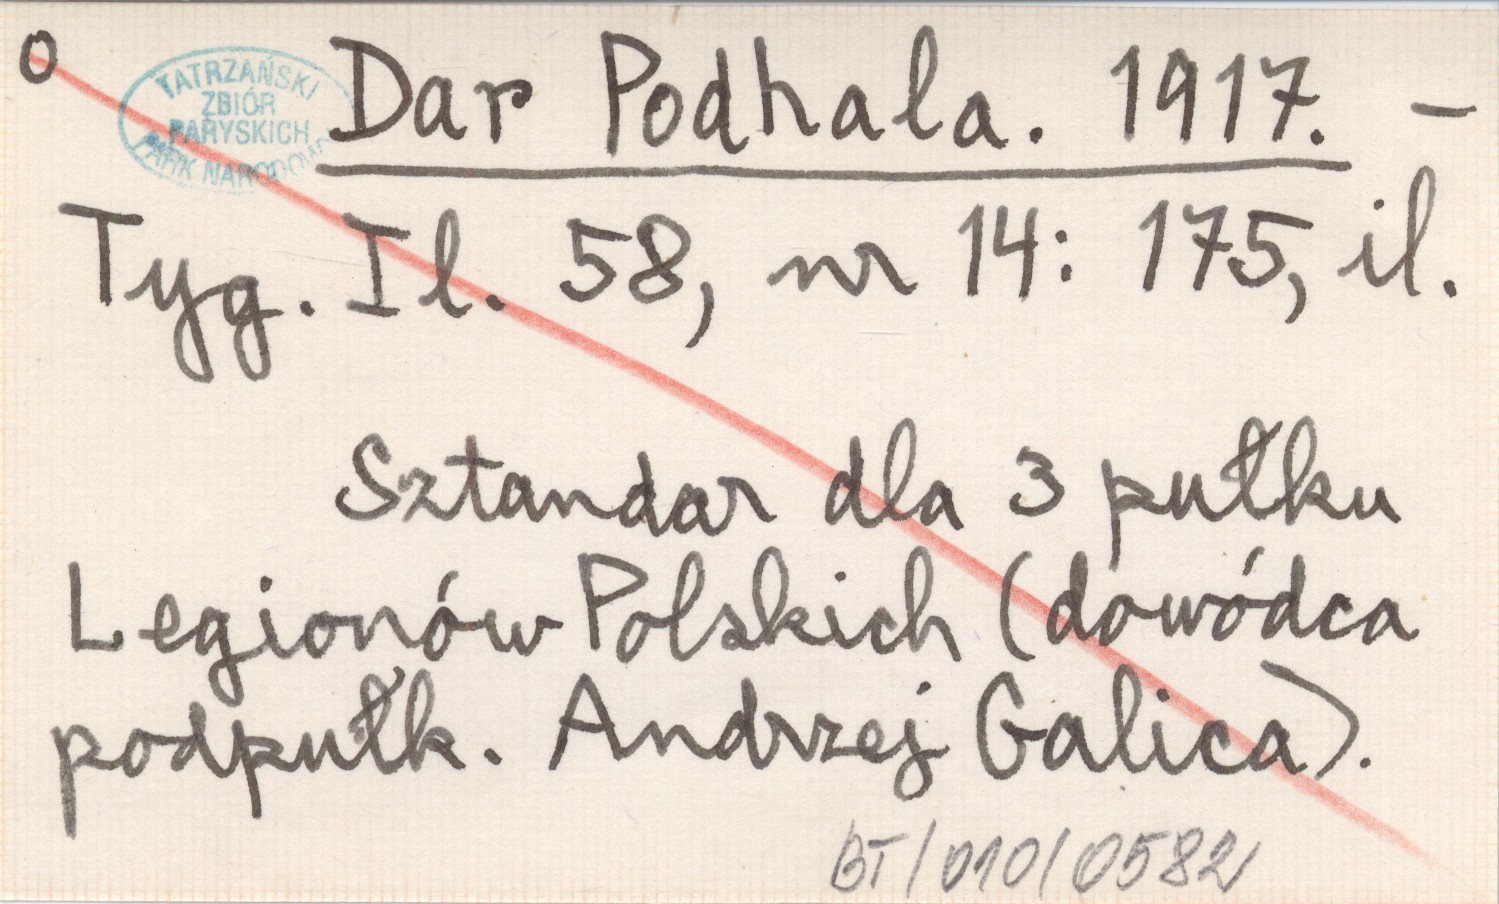 o
TATRZAŃSKI
ZBIÓR
PARYSKICH
PARK NARODOWY
Dar Podhala. 1917. –
Tyg. Il. 58, nr 14: 175, il.
Sztandar dla 3 pułku
Legionów Polskich (dowódca
podpułk. Andrzej Galica).
BT/010/0582